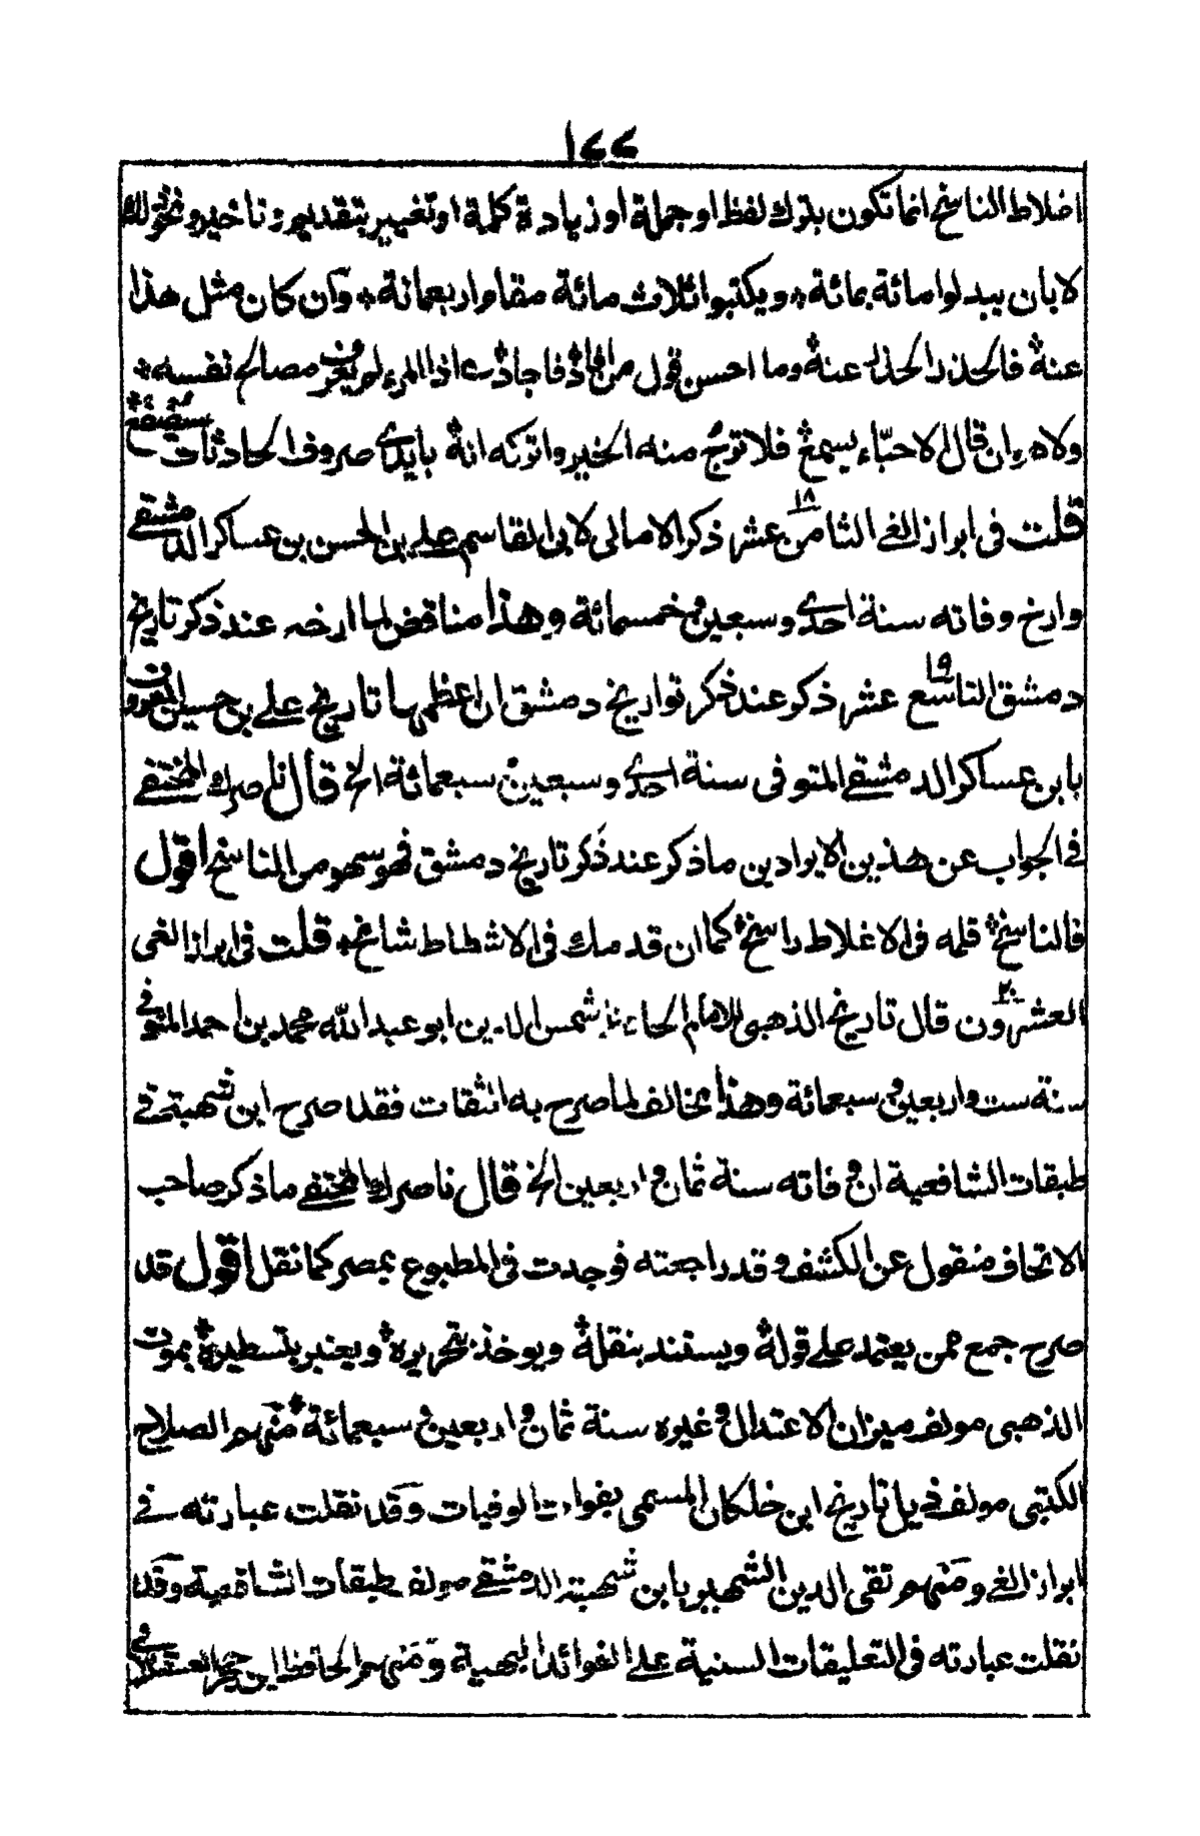 ١٤٤
اغلاط الناسخ انما تكون بترك لفظ او جملة او زيادة كلمة او تغيير بتقديم و تاخير و نحو ذلك
لا بان يبدلوا مائة بمائة * ويكتبوا ثلاث مائة مقام اربعمائة * وان كان مثل هذا
عنه فالحذر الحذر عنه وما احسن قول من افاد فاجاد ع اذا المرء لم يعرف مصالح نفسه *
ولا هو ان قال الاحباء يسمع فلا ترج منه الخير واتركه انه بايدى صروف الحادثات سيصفع
قلت فى ابراز الغى الثامن عشر ١٨ ذكر الامالى لابى القاسم على بن الحسن بن عساكر الدمشقى
وارخ وفاته سنة احدى وسبعين وخمسمائة وهذا مناقض لما ارخه عند ذكر تاريخ
دمشق التاسع ١٩ عشر ذكر عند ذكر تواريخ دمشق ان اعظمها تاريخ على بن حسين المعروف
بابن عساكر الدمشقى المتوفى سنة احدى وسبعين وسبعمائة الخ قال ناصرك المختفى
فى الجواب عن هذين الايرادين ما ذكر عند ذكر تاريخ دمشق فهو سهو من الناسخ اقول
فالناسخ قلمه فى الاغلاط راسخ * كما ان قدمك فى الاشطاط شامخ * قلت فى ابراز الغى
العشرون ٢٠ قال تاريخ الذهبى للامام الحافظ شمس الدين ابو عبد الله محمد بن احمد المتوفى
سنة ست واربعين وسبعمائة وهذا مخالف لما صرح به الثقات فقد صرح ابن شهبة فى
طبقات الشافعية ان وفاته سنة ثمان و اربعين الخ قال ناصرك المختفى ما ذكر صاحب
الاتحاف منقول عن الكشف وقد راجعته فوجدت فى المطبوع بمصر كما نقل اقول قد
صرح جمع ممن يعتمد على قوله ويستند بنقله ويوخذ بتحريره ويعتبر بتسطيره * بموت
الذهبى مولف ميزان الاعتدال وغيره سنة ثمان و اربعين و سبعمائة * منهم الصلاح
الكتبى مولف ذيل تاريخ ابن خلكان المسمى بفوات الوفيات وقد نقلت عبارته فى
ابراز الغى ومنهم تقى الدين الشهير بابن شهبة الدمشقى مولف طبقات الشافعية وقد
نقلت عبارته فى التعليقات السنية على الفوائد البهية ومنهم الحافظ ابن حجر العسقلانى